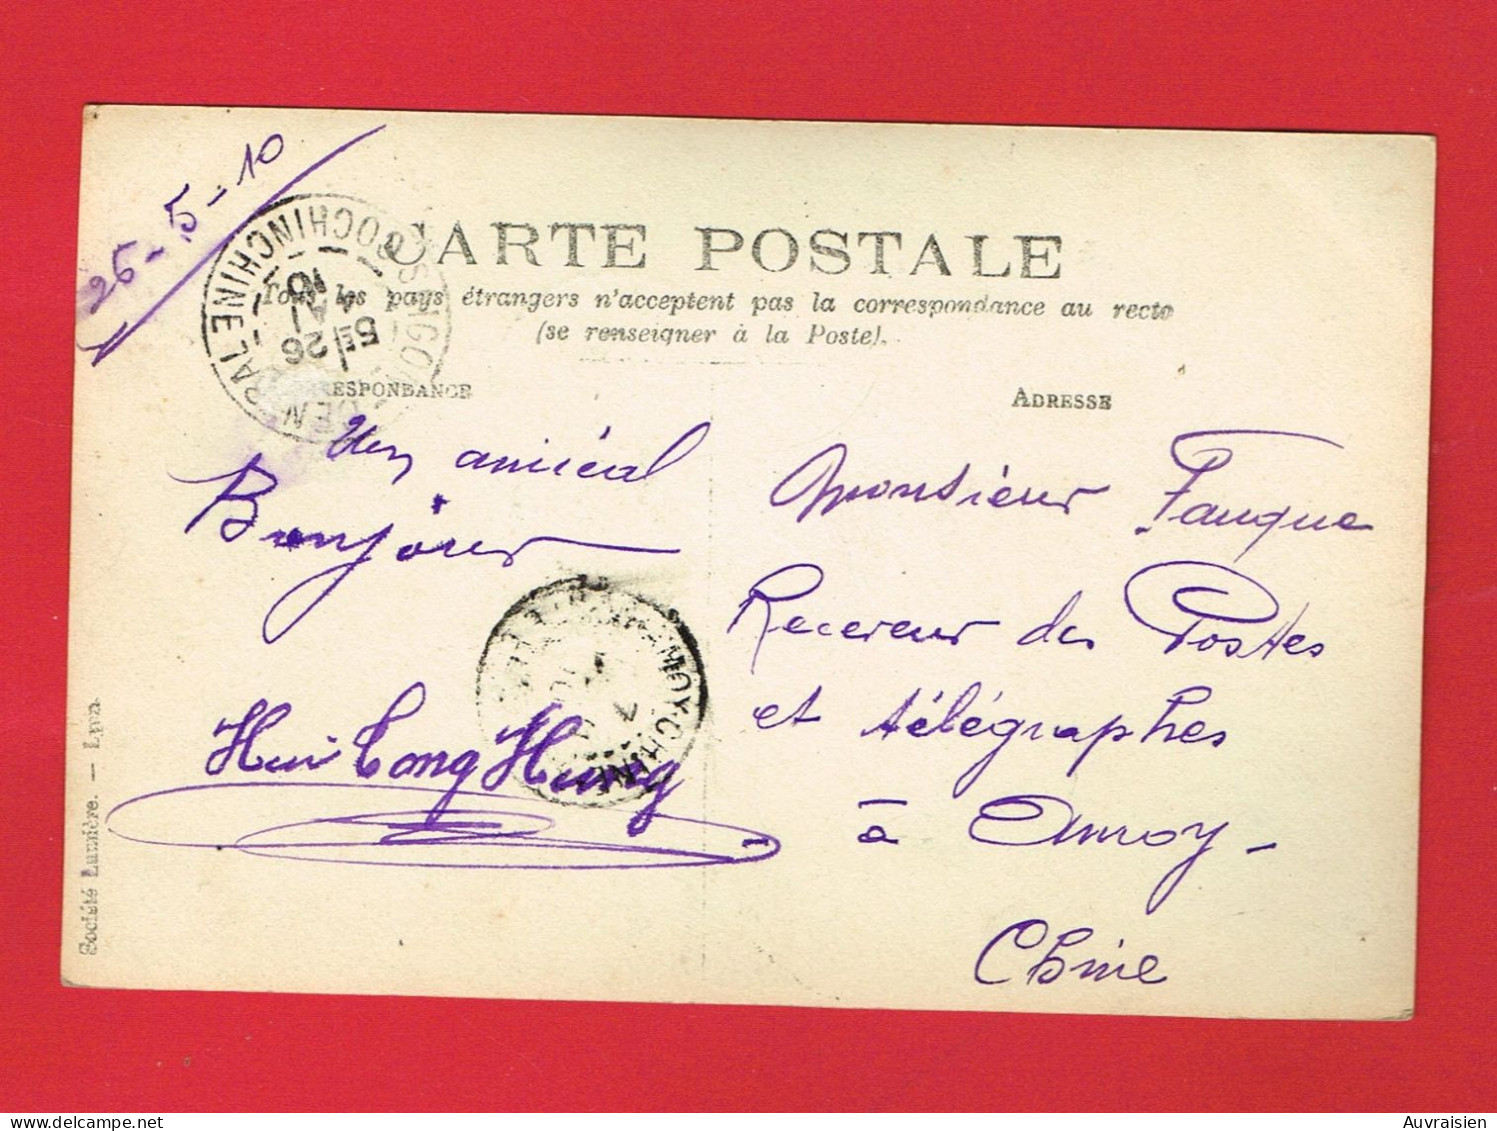 26-5-10
CARTE POSTALE
Tous les pays étrangers n'acceptent pas la correspondance au recto
(se renseigner à la Poste).
CORRESPONDANCE
ADRESSE
SAIGON CENTRALE COCHINCHINE
5E 26 10
Un amical
Bonjour
Hui Cong Hung
Monsieur Fauque
Receveur des Postes
et télégraphes
à Amoy -
Chine
AMOY-CHINE
Société Lumière. — Lyon.
www.delcampe.net
Auvraisien